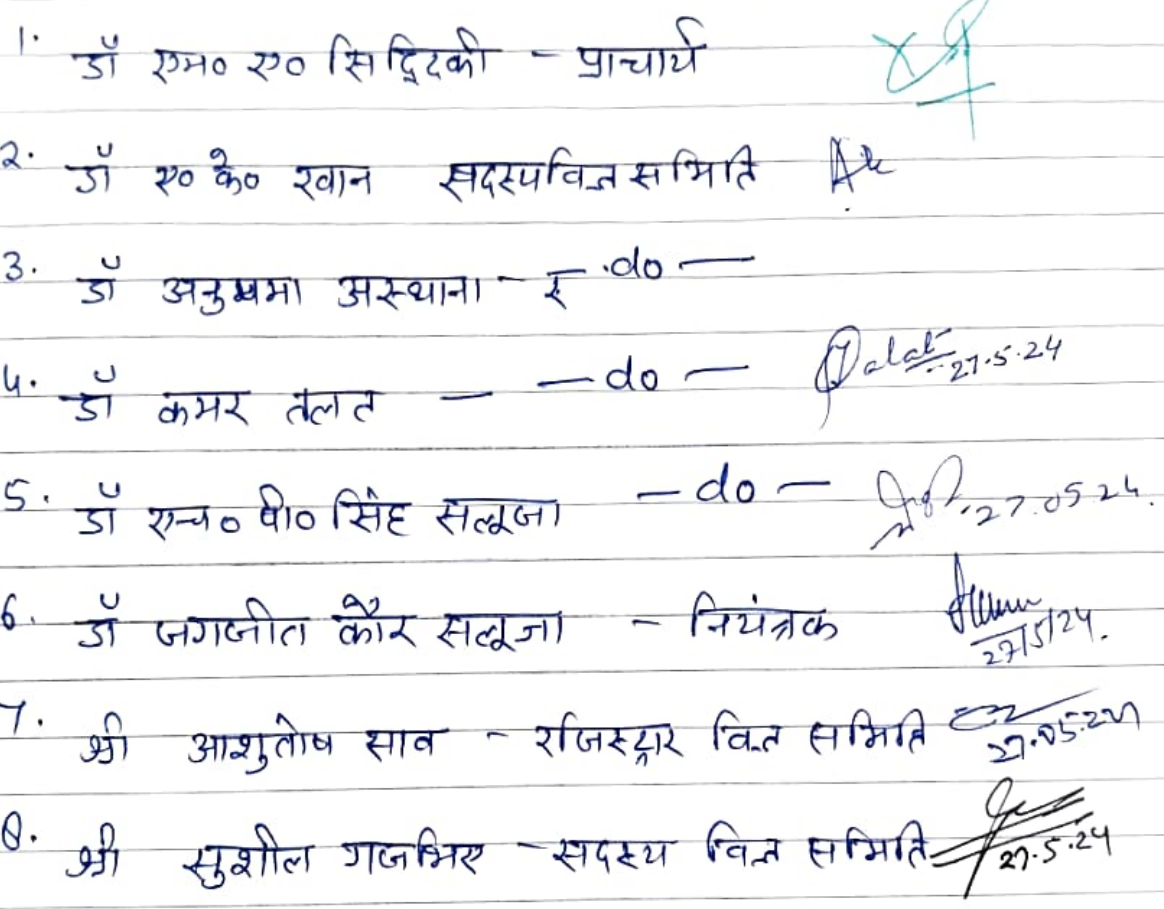 1. डॉ एम० ए० सिद्दिकी - प्राचार्य
2. डॉ ए० के० खान सदस्य वित्त समिति
3. डॉ अनुपमा अस्थाना - do -
4. डॉ कमर तलत - - do -  Talat 27.5.24
5. डॉ एच० पी० सिंह सलूजा - do - 27.05.24.
6. डॉ जगजीत कौर सलूजा - नियंत्रक 27/5/24.
7. श्री आशुतोष साव - रजिस्ट्रार वित्त समिति 27.05.24
8. श्री सुशील गजभिए - सदस्य वित्त समिति 27.5.24